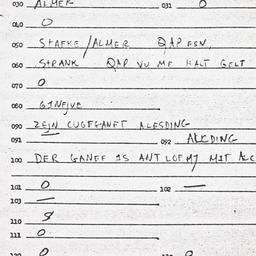 030 ALMER 031 O
040 O
050 STAFKE/ALMER QAP ESN.
060 STRANK QAP VU ME HALT GELT
070 O
080
090 ZEIN CUGEGANET ALESDING
091 — 092 ALCDING
100 DER GANEF IS ANTLOFMJ MIT ALC
101 O 102 —
103 —
110
111 O
120 O